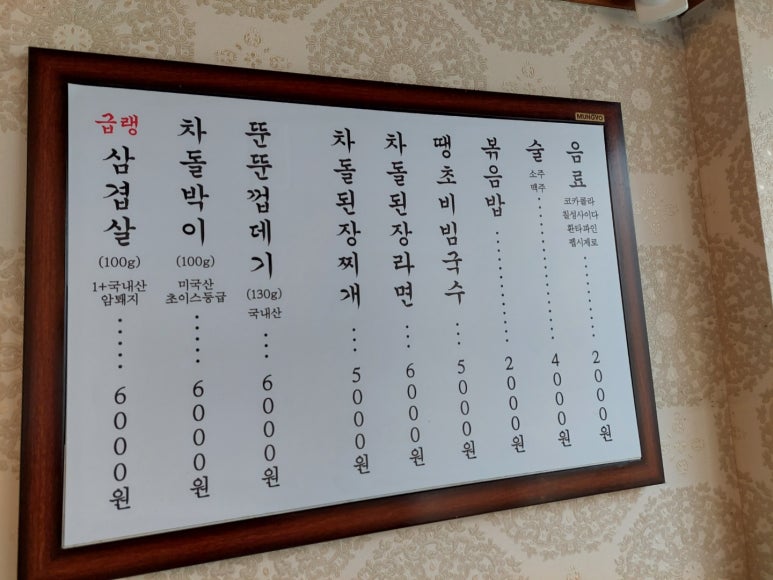 급랭 삼겹살
(100g)
1+국내산
암돼지
......
6000원
차돌박이
(100g)
미국산
초이스등급
.....
6000원
뚠뚠껍데기
(130g)
국내산
...
6000원
차돌된장찌개
...
5000원
차돌된장라면
...
6000원
땡초비빔국수
...
5000원
볶음밥
..........
2000원
술
소주
맥주
............
4000원
음료
코카콜라
칠성사이다
환타파인
펩시제로
.........
2000원
MUNGYO